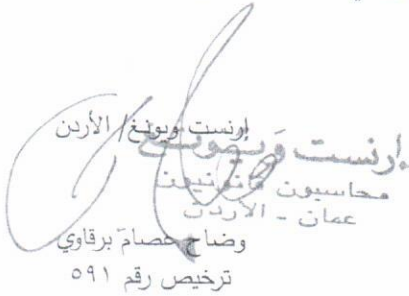 إرنست ويونغ/ الأردن
إرنست ويونغ
محاسبون قانونيون
عمان - الأردن
وضاح عصام برقاوي
ترخيص رقم ٥٩١